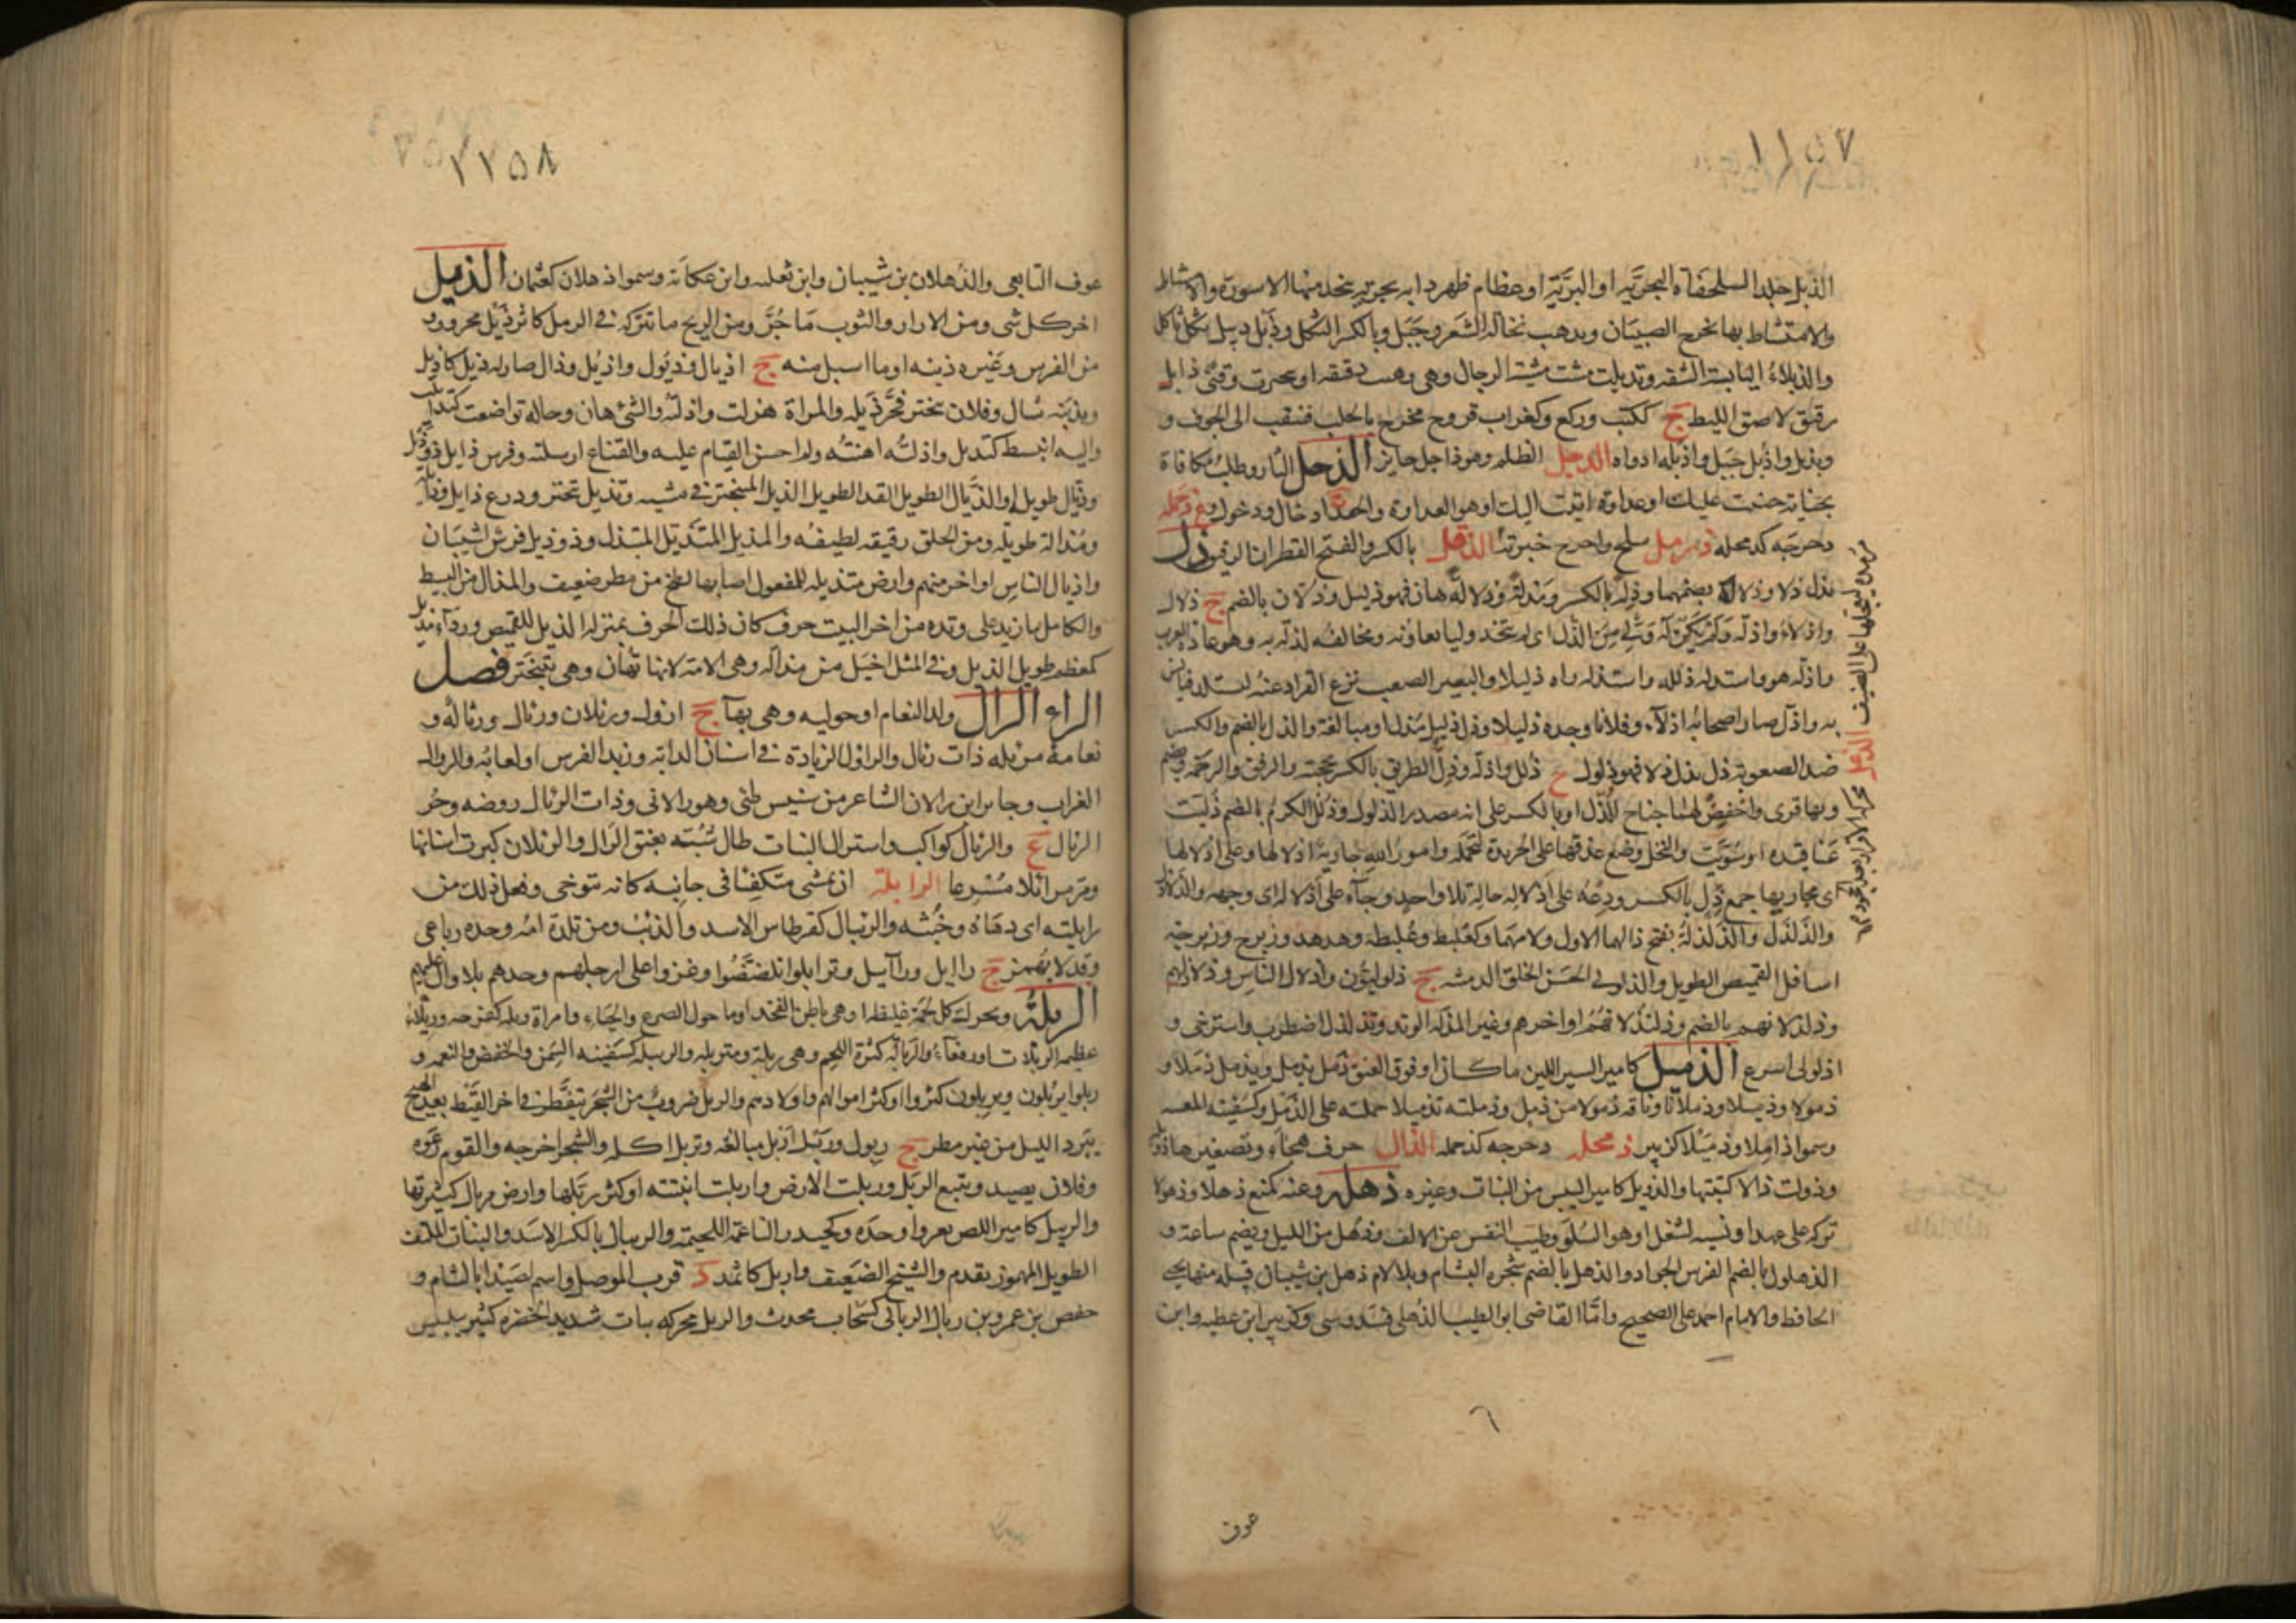 ١١٥٧
الذبل جلد السلحفاة البحرية او البرية او عظام ظهر دابه بحريه يتخذ منها الاسورة والامشاط
والامتشاط بها يخرج الصيبان ويذهب نخالة الشعر وجبل وبالكسر الثكل وذبل ذبيل ثكل ثاكل
والذبلاء اليابسة الشفه وتذبلت مشت مشية الرجال وهي دقيقه او تبخترت وقنى ذابل
رقيق لاصق الليط ج ككتب وركع وكغراب قروح تخرج بالجنب فتنقب الى الجوف و
ويذبل واذبل جبل واذبله اذواه الذجل الظلم وهو ذاجل جاير الذحل الثار وطلب مكافاة
بجناية جنيت عليك او عداوة اتيت اليك او هو العداوة والحقد ج اذحال وذحول
دحرجه كذمحله ذرمل سلح واخرج خبزته الذفل بالكسر والفتح القطران الرقيق ذل
يذل ذلا وذلالة بضمهما وذلة بالكسر ومذلة وذلالة هان فهو ذليل وذلان بالضم ج ذلال
واذلاء واذلة ولم يكن له ولي من الذل اى لم يتخذ وليا يعاونه ويحالفه لذلة به وهو عادة العرب
واذله هو واستذله ذلله واستذله راه ذليلا والبعير الصعب نزع القراد عنه ليستلذ فيانس
به واذل صار اصحابه اذلاء وفلانا وجده ذليلا وذل ذليل مذل او مبالغة والذل بالضم والكسر
ضد الصعوبة ذل يذل ذلا فهو ذلول ج ذلل واذلة وذل الطريق بالكسر محجته والرفق والرحمة ويضم
وبهما قرى واخفض لهما جناح الذل او بالكسر على انه مصدر الذلول وذلل الكرم بالضم ذليت
عناقيده او سويت والنخل وضع عذقها على الجريدة لتحمله وامور الله جارية اذلالها وعلى اذلالها
اى مجاريها جمع ذل بالكسر ودعه على اذلاله حاله بلا واحد وجاء على اذلاله اى وجهه
والذلذل والذلذلة بفتح ذالهما الاول ولامهما وكعلبط وعلبطة وهدهد وزبرج وزبرجة
اسافل القميص الطويل والذلولي الحسن الخلق الدمثه ج ذلوليون واذلال الناس وذلاذلهم
وذلذلاتهم بالضم وذليذلاتهم اواخرهم وعير المذلة الوتد وتذلذل اضطرب واسترخى و
اذلولى اسرع الذميل كامير السير اللين ما كان او فوق العنق ذمل يذمل ويذمل ذملا و
ذمولا وذميلا وذملانا وناقه ذمول من ذمل وذملته تذميلا حملته على الذمل وكسفينه المعيبه
وسموا ذاملا وذميلا كزبير ذمحله دحرجه كذحمله الذال حرف هجاء وتصغيرها ذويلة
وذولت ذالا كتبتها والذويل كامير اليبيس من النبات وغيره ذهله وعنه كمنع ذهلا وذهولا
تركه على عهد او نسيه لشغل او هو السلو وطيب النفس عن الالف وذهل من الليل ويضم ساعة و
الذهلول بالضم الفرس الجواد والذهل بالضم شجرة البشام وبلا لام ذهل بن شيبان قبيلة منها يحيى
الحافظ والامام احمد على الصحيح واما القاضي ابو الطيب الذهلي فسدوسي وكزبير ابن عطيه وابن
عوف
١١٥٨
عوف التابعي والذهلان بن شيبان وابن ثعلبه وابن عكابة وسموا ذهلان كعثمان الذيل
اخر كل شى ومن الازار والثوب ما جر ومن الريح ما تتركه في الرمل كاثر ذيل مجرور و
من الفرس وغيره ذنبه او ما اسبل منه ج اذيال وذيول واذيل وذال صار له ذيل كاذيل
وبذنبه شال وفلان تبختر فجر ذيله والمراة هزلت واذلته والشئ هان وحاله تواضعت كتذايلت
واليه انبسط كتذيل واذلته اهنته ولم احسن القيام عليه والقناع ارسلته وفرس ذايل ذو ذيل
وذيال طويله او الذيال الطويل القد الطويل الذيل المتبختر في مشيه وتذيل تبختر ودرع ذايل وذايلة
ومذالة طويله ومن الحلق رقيقه لطيفه والمذيل المتذيل المتبذل وذو ذيل فرش شيبان
واذيال الناس اواخر منهم وارض متذيله للمفعول اصابها لطخ من مطر ضعيف والمذال من البسيط
والكامل ما زيد على وتده من اخر البيت حرف كان ذلك الحرف بمنزلة الذيل للقميص ورداء مذيل
كمعظم طويل الذيل وفي المثل اخيل من مذاله وهي الامة لانها تهان وهي تتبختر فصل
الراء الرال ولد النعام او حوليه وهي بهاء ج ارؤل ورئلان ورئال ورئالة و
نعامة مرئله ذات رئال والراؤل الزيادة في اسنان الدابه وزبد الفرس او لعابه والروال
الغراب وجابر ابن رالان الشاعر من سنبس طئ وهو رالاني وذات الرئال روضه وجو
الرئال ع والرئال كواكب واسترال النبات طال شبه بعنق الرال والرئلان كبرت اسنانها
ومر مرائلا مسرعا الرابلة ان يمشى متكفئا في جانبه كانه يتوخى وفعل ذلك من
رابلته اى دهائه وخبثه والرئبال كقرطاس الاسد والذئب ومن تلده امه وحده رباعي
وقد لا يهمز ج رابل ورآبيل وترابلوا تلصصوا وغزوا على ارجلهم وحدهم بلا وال عليهم
الربلة ويحرك كل لحمة غليظه او هي باطن الفخذ او ما حول الضرع والحياء وامراة ربله كفرحه وربلاء
عظيمة الربلات او رفغاء والربالة كثرة اللحم وهي ربلة ومتربله والربيله كسفينه السمن والخفض والنعمه و
ربلوا يربلون ويربلون كثروا او كثر اموالهم واولادهم والربل ضروب من الشجر يتفطر في اخر القيظ بعد الهيج
ببرد الليل من غير مطر ج ربول وربل اربل مبالغه وتربل اكله والشجر اخرجه والقوم رعوه
وفلان يصيد وتتبع الربل وربلت الارض واربلت انبتته او كثر ربلها وارض مربال كثيرتها
والربيل كامير اللص يغزو وحده وكحيدر الناعمة اللحيمة والريبال بالكسر الاسد والنبات الملتف
الطويل المهموز يقدم والشيخ الضعيف واربل كاثمد د قرب الموصل واسم لصيدا بالشام و
حفص بن عمرو بن ربال الربالي كسحاب محدث والربل محركه نبات شديد الخضرة كثير ببلبيس